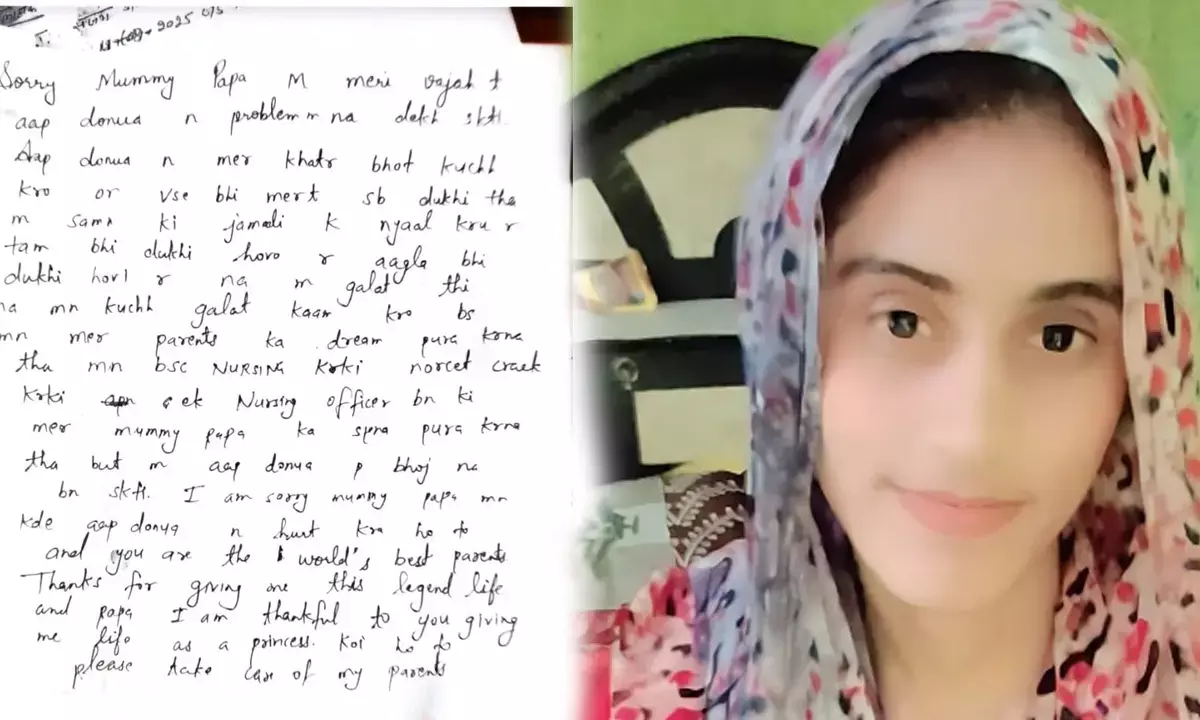 2025
Sorry Mummy Papa M meri vajah t
aap donua n problem m na dekh skti.
Aap donua n mer khatr bhot kuchh
kro or vse bhi mert sb dukhi tha
m ki k nyaal kru r
tam bhi dukhi hovo r aagla bhi
dukhi hovl r na m galat thi
na mn kuchh galat kaam kro bs
mn mer parents ka dream pura krna
tha mn bsc NURSING krki norcet crack
krki ek Nursing officer bn ki
mer mummy papa ka spna pura krna
tha but m aap donua p bhoj na
bn skti. I am sorry mummy papa mn
kde aap donua n hurt kra ho to
and you are the world's best parents
Thanks for giving me this legend life
and papa I am thankful to you giving
me life as a princess. Koi ho to
please take care of my parents